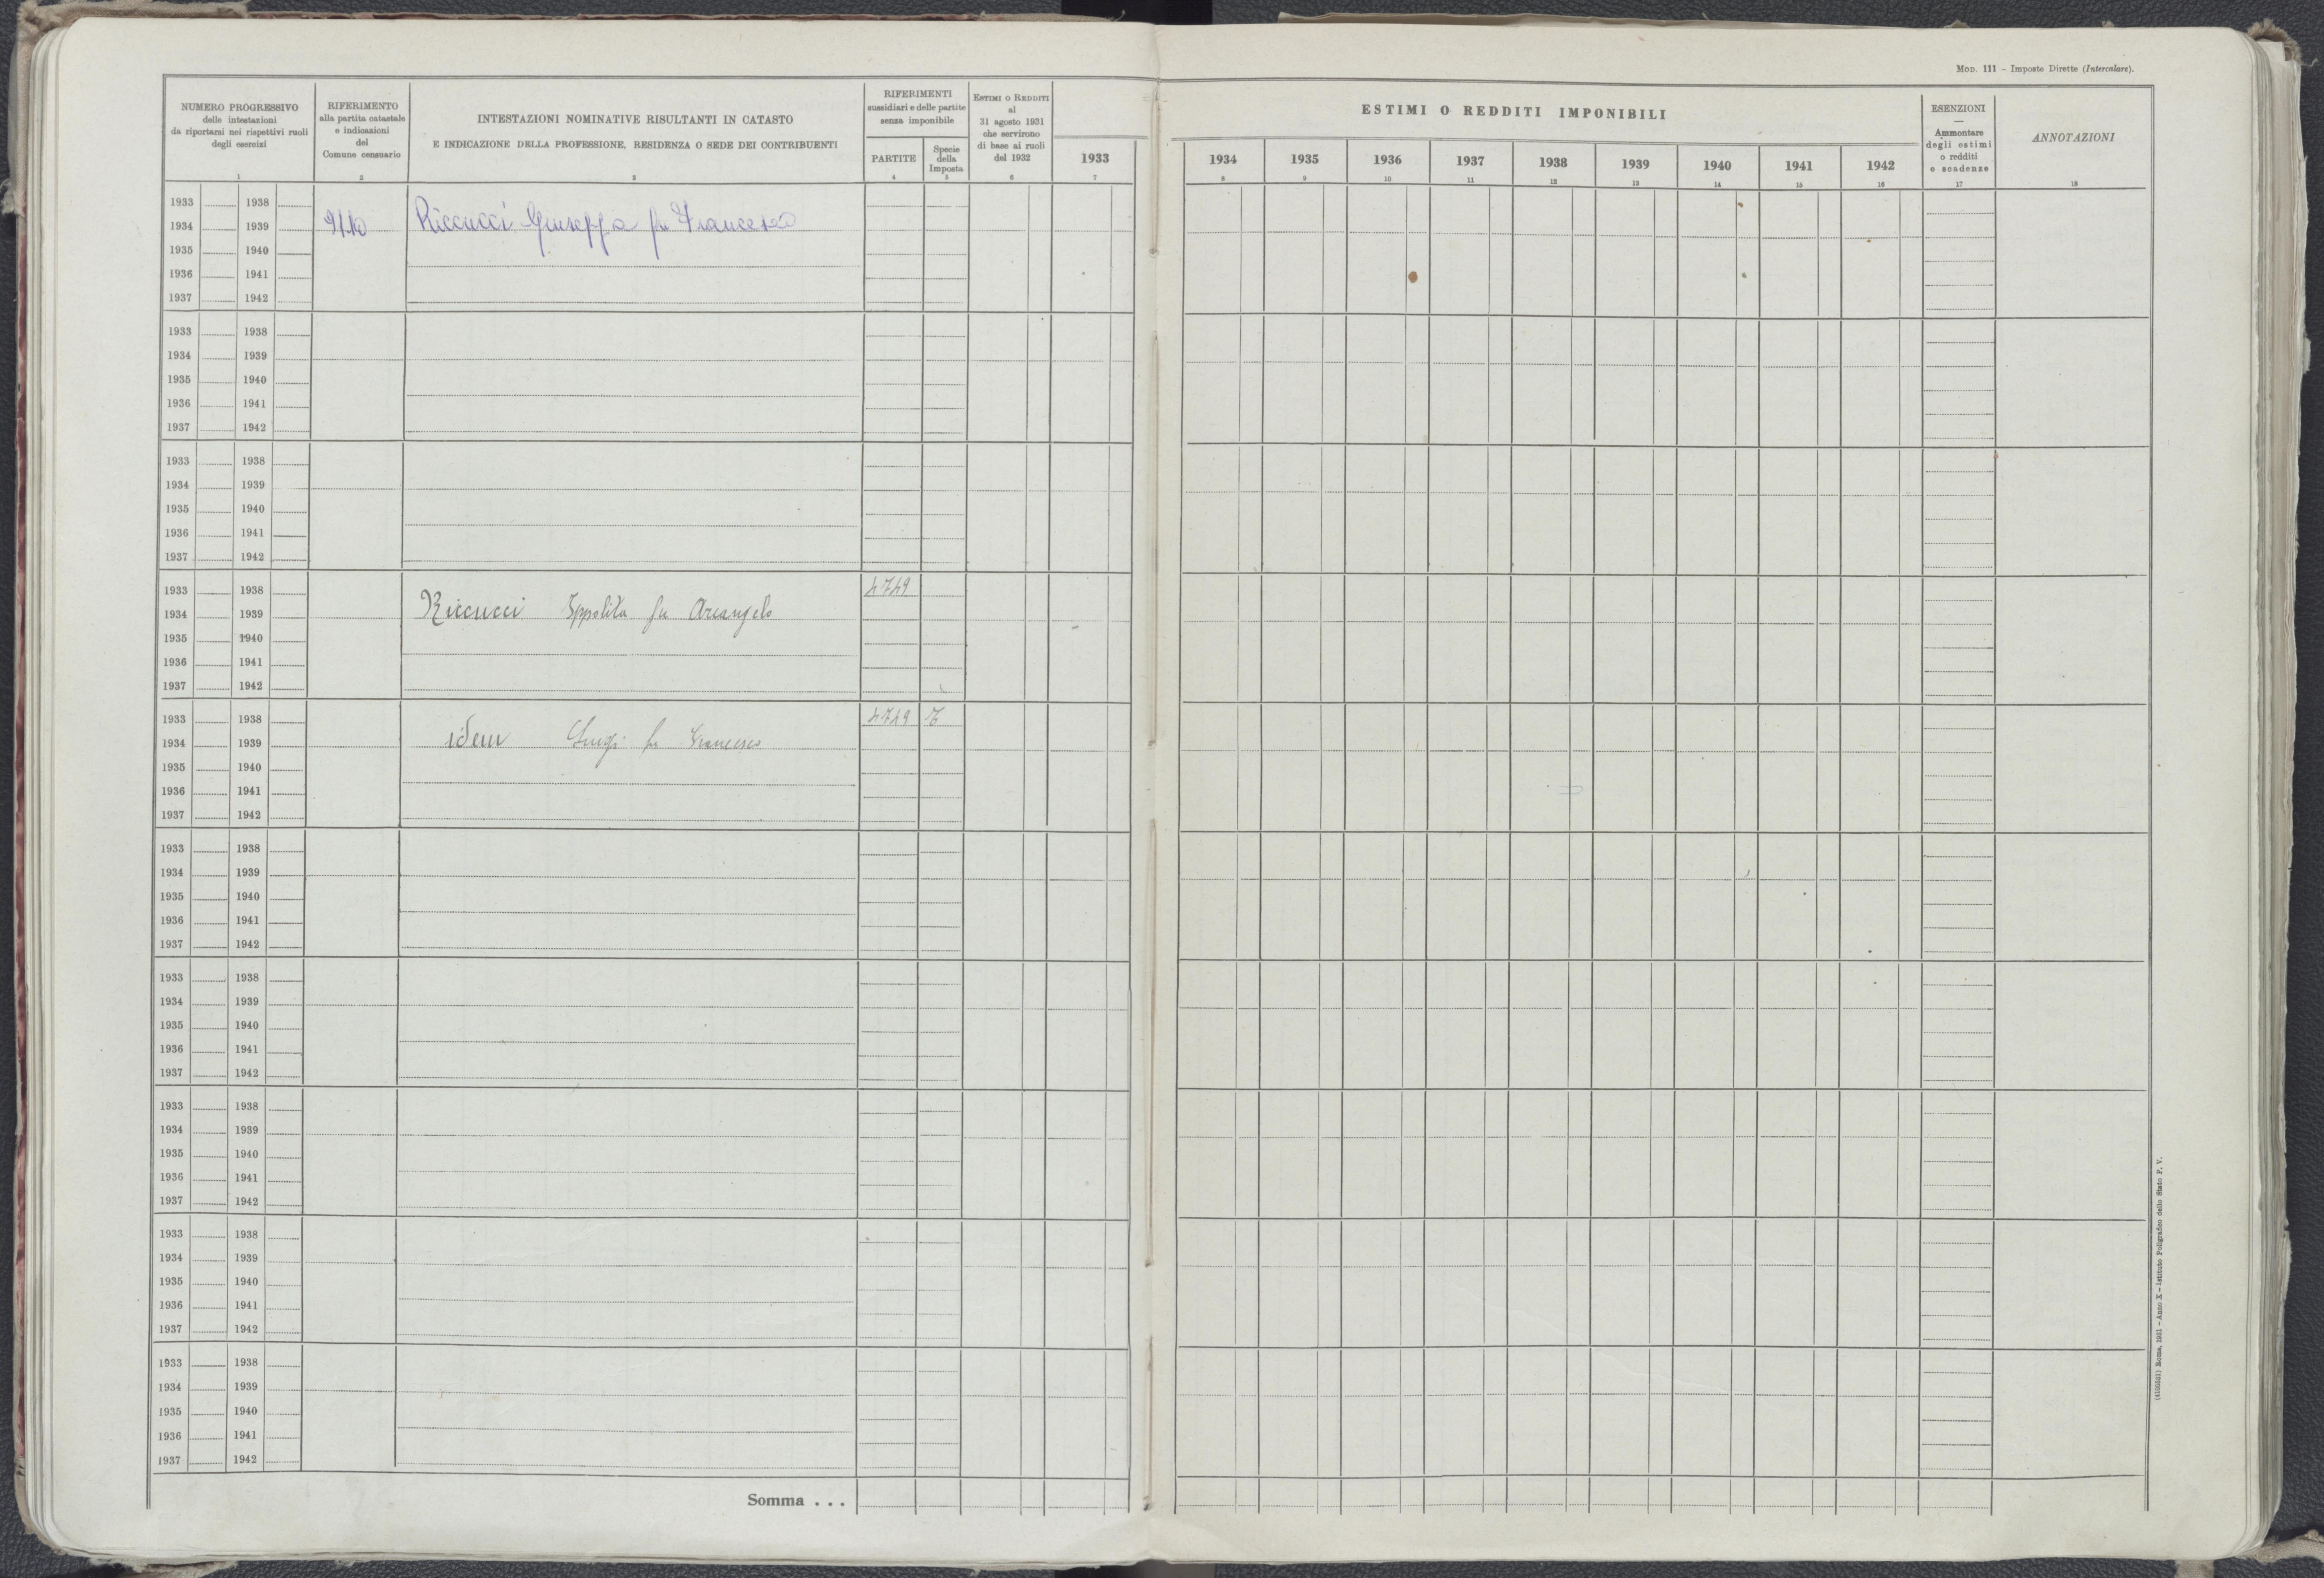 Mod. 111 – Imposte Dirette (Intercalare).
NUMERO PROGRESSIVO
delle intestazioni
da riportarsi nei rispettivi ruoli
degli esercizi
1
RIFERIMENTO
alla partita catastale
e indicazioni
del
Comune censuario
2
INTESTAZIONI NOMINATIVE RISULTANTI IN CATASTO
E INDICAZIONE DELLA PROFESSIONE, RESIDENZA O SEDE DEI CONTRIBUENTI
3
RIFERIMENTI
sussidiari e delle partite
senza imponibile
PARTITE
4
Specie
della
Imposta
5
Estimi o Redditi
al
31 agosto 1931
che servirono
di base ai ruoli
del 1932
6
1933
7
ESTIMI O REDDITI IMPONIBILI
1934 1935 1936 1937 1938 1939 1940 1941 1942
8 9 10 11 12 13 14 15 16
ESENZIONI
—
Ammontare
degli estimi
o redditi
e scadenze
17
ANNOTAZIONI
18
1933 1938
1934 1939 Riccucci Giuseppa fu Francesco
1935 1940
1936 1941
1937 1942
1933 1938
1934 1939
1935 1940
1936 1941
1937 1942
1933 1938
1934 1939
1935 1940
1936 1941
1937 1942
1933 1938 4749
1934 1939 Riccucci Ippolita fu Arcangelo
1935 1940
1936 1941
1937 1942
1933 1938 4749
1934 1939 idem Luigi fu Francesco
1935 1940
1936 1941
1937 1942
1933 1938
1934 1939
1935 1940
1936 1941
1937 1942
1933 1938
1934 1939
1935 1940
1936 1941
1937 1942
1933 1938
1934 1939
1935 1940
1936 1941
1937 1942
1933 1938
1934 1939
1935 1940
1936 1941
1937 1942
1933 1938
1934 1939
1935 1940
1936 1941
1937 1942
Somma . . .
Roma, 1931 – Anno X – Istituto Poligrafico dello Stato P. V.